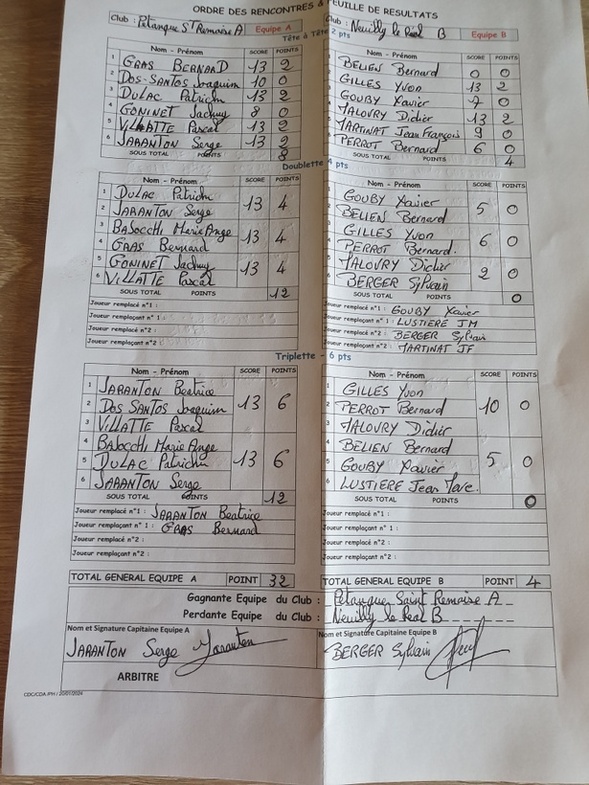 ORDRE DES RENCONTRES & FEUILLE DE RESULTATS
Club : Pétanque St Remoise A Equipe A
Club : Neuilly le Real B Equipe B
Tête à Tête 2 pts
Nom - Prénom SCORE POINTS
1 GRAS BERNARD 13 2
2 DOS-SANTOS Joaquim 10 0
3 DULAC Patrichu 13 2
4 GONINET Jachuy 8 0
5 VILLATTE Pascal 13 2
6 JARANTON Serge 13 2
SOUS TOTAL POINTS 8
Nom - Prénom SCORE POINTS
BELIEN Bernard 0 0
GILLES Yvon 13 2
GOUBY Xavier 7 0
MALOVRY Didier 13 2
MARTINAT Jean François 9 0
PERROT Bernard 6 0
SOUS TOTAL POINTS 4
Doublette 4 pts
Nom - Prénom SCORE POINTS
1 DULAC Patrichu
2 JARANTON Serge 13 4
3 BASOCCHI Marie Ange
4 GRAS Bernard 13 4
5 GONINET Jachuy
6 VILLATTE Pascal 13 4
SOUS TOTAL POINTS 12
Joueur remplacé n°1 :
Joueur remplaçant n°1 :
Joueur remplacé n°2 :
Joueur remplaçant n°2 :
Nom - Prénom SCORE POINTS
GOUBY Xavier
BELIEN Bernard 5 0
GILLES Yvon
PERROT Bernard. 6 0
MALOVRY Didier
BERGER Sylvain 2 0
SOUS TOTAL POINTS 0
Joueur remplacé n°1 : GOUBY Xavier
Joueur remplaçant n° 1 : LUSTIERE JM
Joueur remplacé n°2 : BERGER Sylvain
Joueur remplaçant n° 2 : MARTINAT JF
Triplette - 6 pts
Nom - Prénom SCORE POINTS
1 JARANTON Beatrice
2 DOS SANTOS Joaquim 13 6
3 VILLATTE Pascal
4 BASOCCHI Marie Ange
5 DULAC Patrichu 13 6
6 JARANTON Serge
SOUS TOTAL POINTS 12
Joueur remplacé n°1 : JARANTON Beatrice
Joueur remplaçant n° 1 : GRAS Bernard
Joueur remplacé n°2 :
Joueur remplaçant n°2 :
Nom - Prénom SCORE POINTS
GILLES Yvon
PERROT Bernard 10 0
MALOVRY Didier
BELIEN Bernard
GOUBY Xavier 5 0
LUSTIERE Jean Marc.
SOUS TOTAL POINTS 0
Joueur remplacé n°1 :
Joueur remplaçant n° 1 :
Joueur remplacé n°2 :
Joueur remplaçant n°2 :
TOTAL GENERAL EQUIPE A POINT 32
TOTAL GENERAL EQUIPE B POINT 4
Gagnante Equipe du Club : Pétanque Saint Remoise A
Perdante Equipe du Club : Neuilly le Real B
Nom et Signature Capitaine Equipe A
JARANTON Serge Jaranton
Nom et Signature Capitaine Equipe B
BERGER Sylvain
ARBITRE
CDC/CDA JPH / 20/01/2024